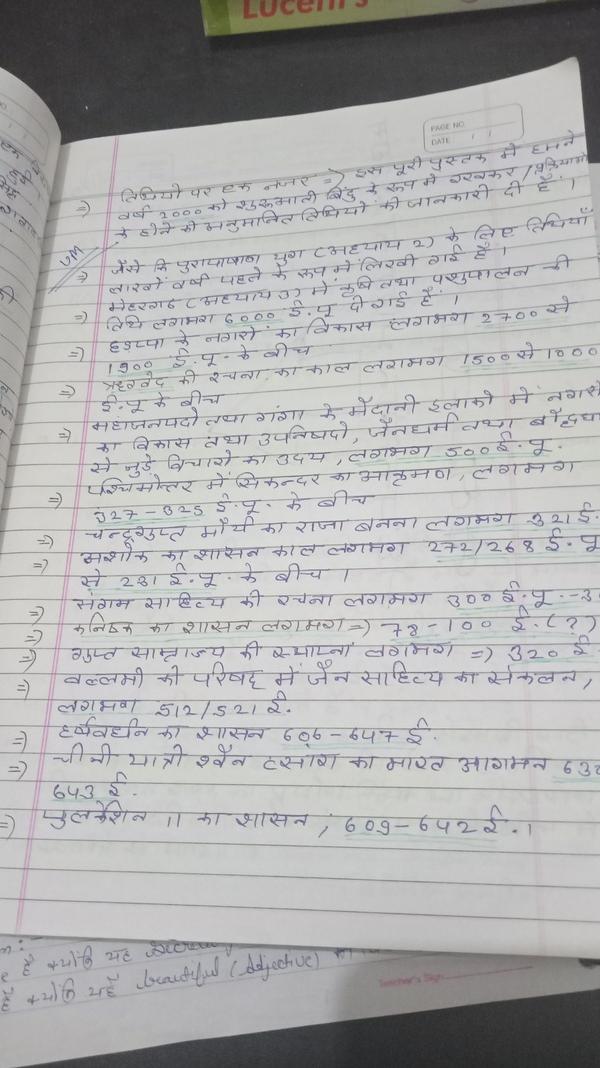 Lucent's
PAGE NO.
DATE
⇒ तिथियो पर एक नजर ⇒ इस पूरी पुस्तक में हमने
वर्ष 2000 को शुरुआती बिंदु के रूप में रखकर /
के होने की अनुमानित तिथियों की जानकारी दी है ।
⇒ जैसे कि पुरापाषाण युग (अध्याय 2) के लिए तिथियाँ
लाखों वर्षों पहले के रूप में लिखी गई हैं ।
⇒ मेहरगढ (अध्याय 3) में कृषि तथा पशुपालन की
तिथि लगभग 6000 ई.पू. दी गई है ।
⇒ हड़प्पा के नगरों का विकास लगभग 2700 से
1900 ई.पू. के बीच
⇒ ऋग्वेद की रचना का काल लगभग 1500 से 1000
ई.पू के बीच
⇒ महाजनपदो तथा गंगा के मैदानी इलाको में नगरो
का विकास तथा उपनिषदो, जैनधर्म तथा
से जुड़े विचारों का उदय, लगभग 500 ई.पू.
⇒ पश्चिमोत्तर में सिकन्दर का आक्रमण, लगभग
327 - 325 ई.पू. के बीच
⇒ चन्द्रगुप्त मौर्य का राजा बनना लगभग 321 ई.
⇒ अशोक का शासन काल लगभग 272/268 ई.पू
से 231 ई.पू. के बीच ।
⇒ संगम साहित्य की रचना लगभग 300 ई.पू. -
⇒ कनिष्क का शासन लगभग ⇒ 78 - 100 ई. (?)
⇒ गुप्त साम्राज्य की स्थापना लगभग ⇒ 320 ई
⇒ वल्लभी की परिषद में जैन साहित्य का संकलन,
लगभग 512/521 ई.
⇒ हर्षवर्धन का शासन 606 - 647 ई.
⇒ चीनी यात्री श्वैन त्सांग का भारत आगमन
643 ई.
⇒ पुलकेशिन II का शासन ; 609 - 642 ई. ।
है क्योंकि यह
है क्योंकि यहाँ beautiful (Adjective)
Teacher's Sign